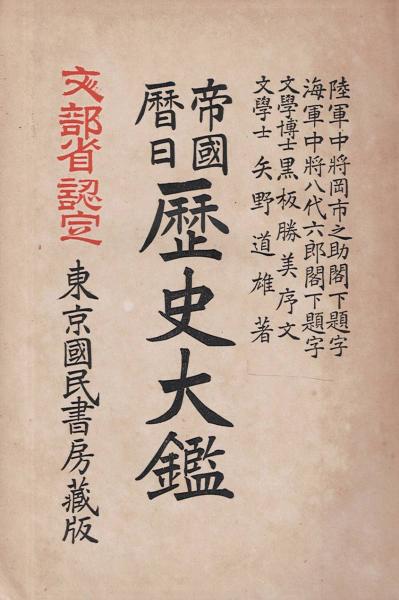 陸軍中將岡市之助閣下題字
海軍中將八代六郎閣下題字
文學博士黒板勝美序文
文學士矢野道雄著
帝國
曆日
歷史大鑑
文部省認定
東京國民書房藏版